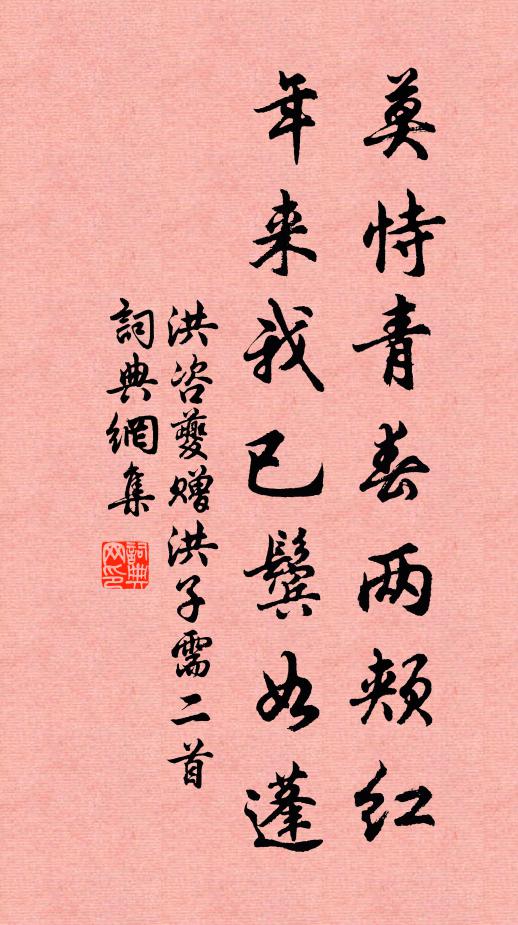 莫恃青春两颊红
年来我已鬓如蓬
洪咨夔赠洪子需二首
詞典網集
詞典网印